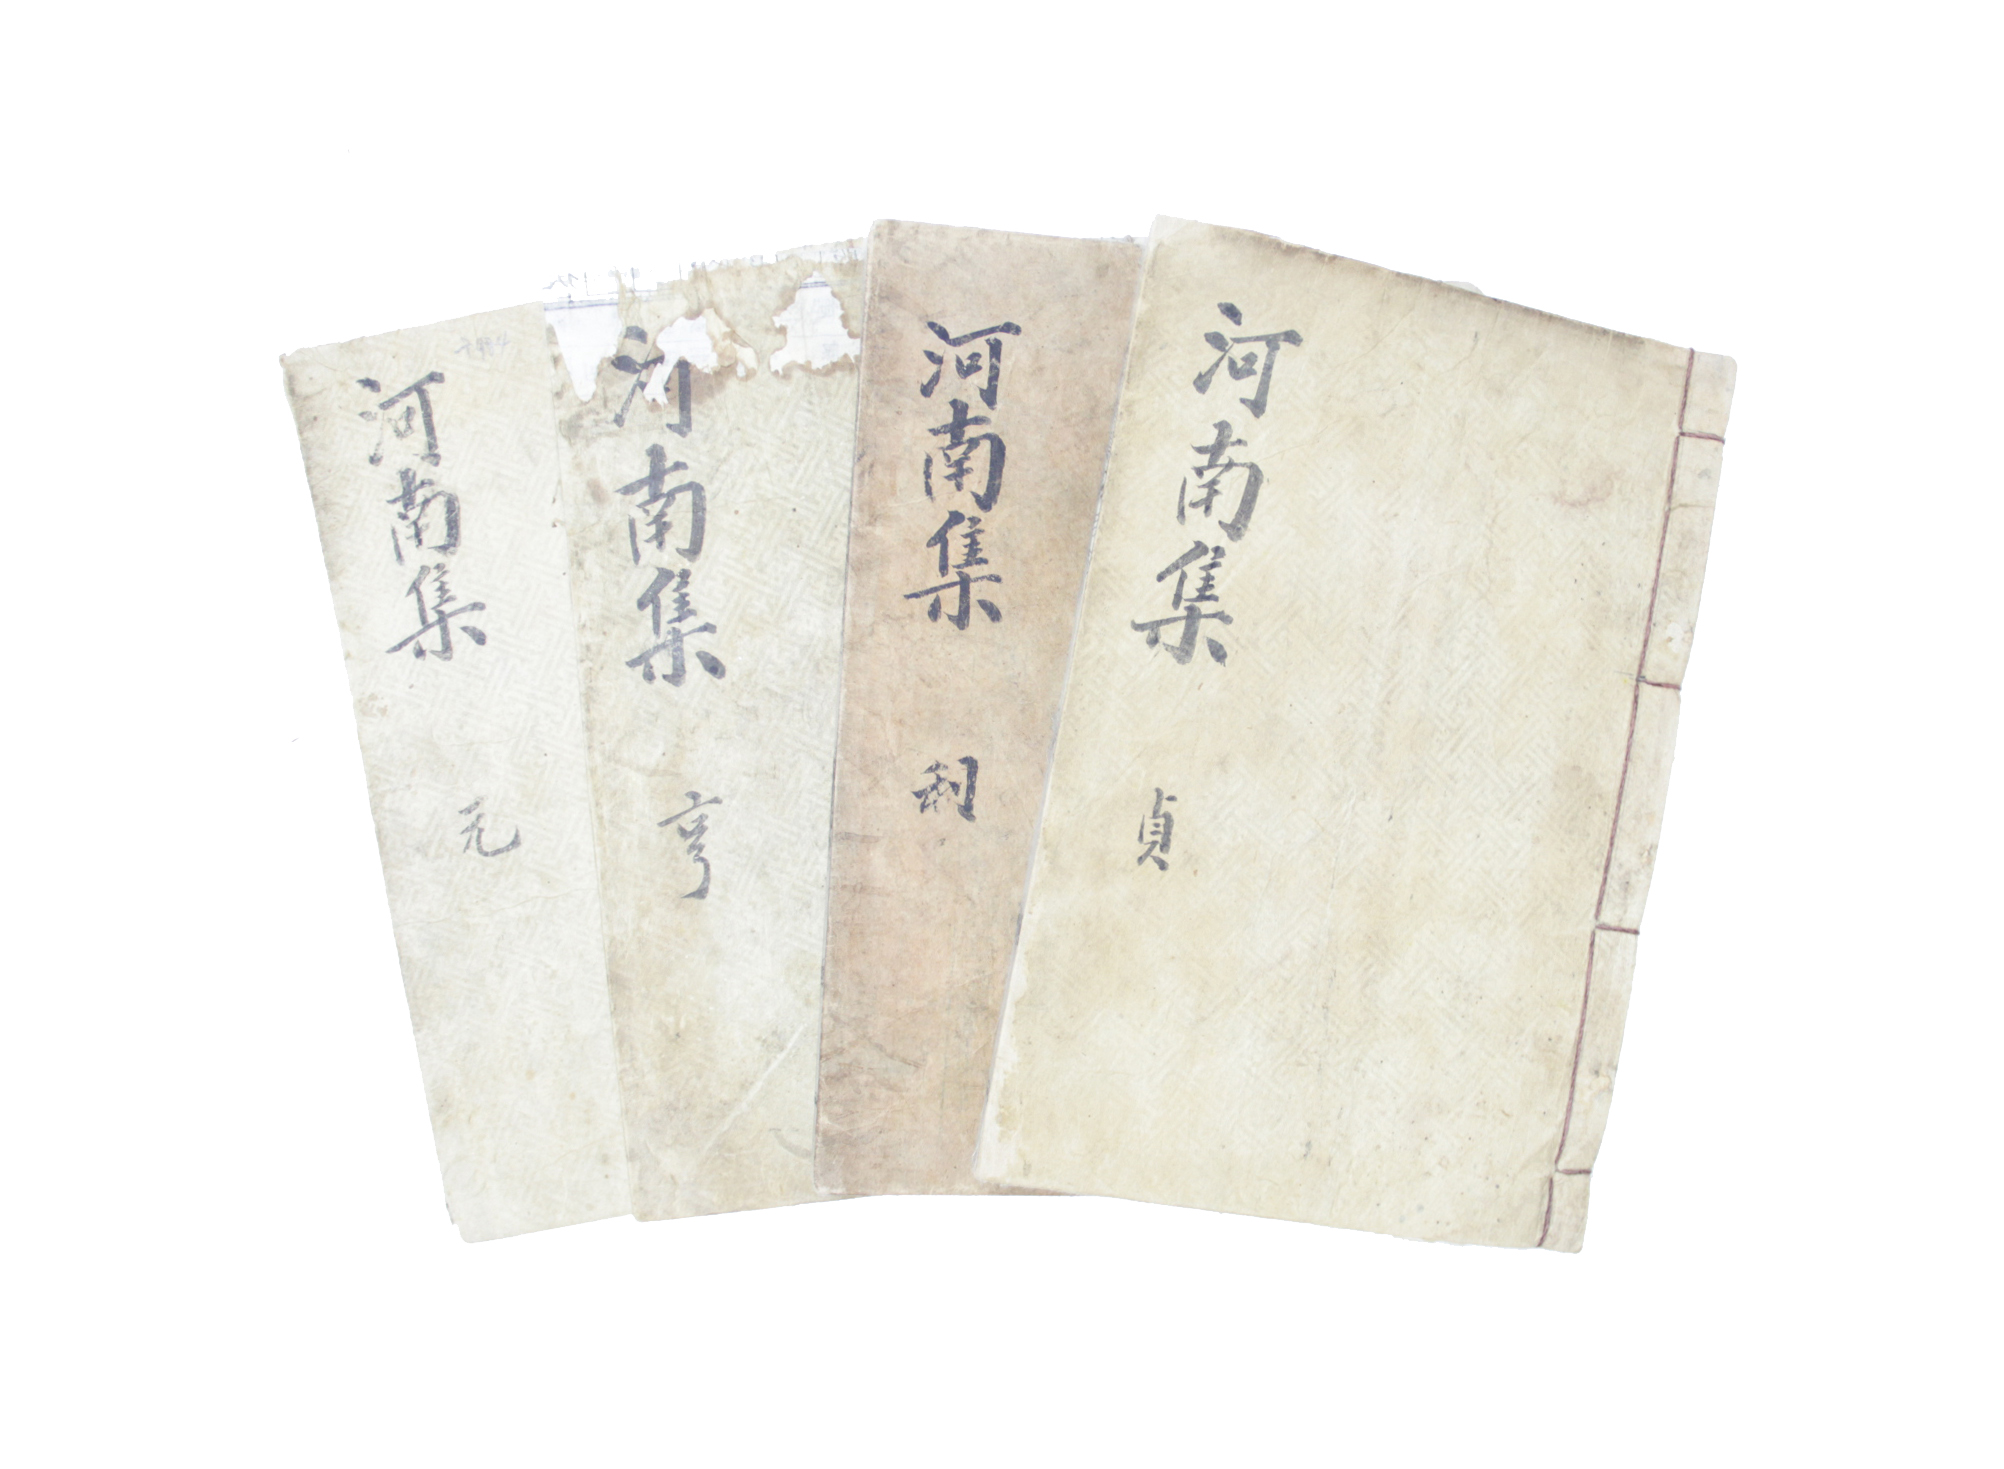 河南集
元
河南集
亨
河南集
利
河南集
貞